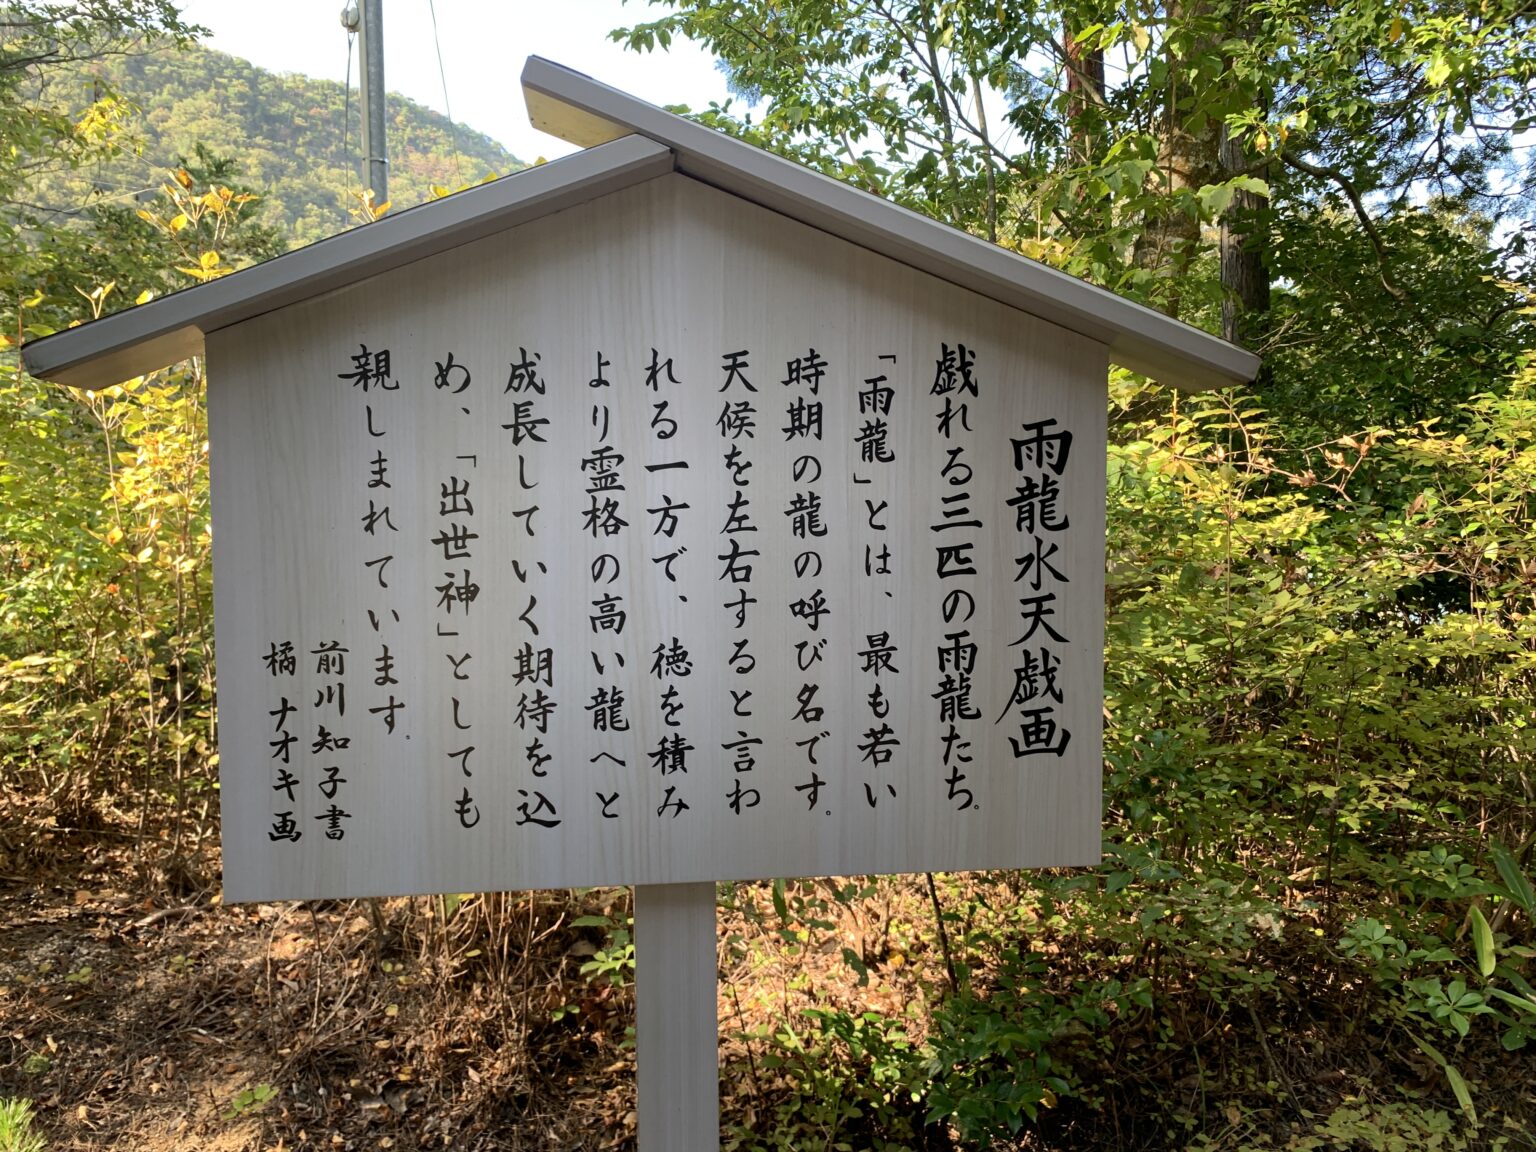 雨龍水天戯画
戯れる三匹の雨龍たち。
「雨龍」とは、最も若い
時期の龍の呼び名です。
天候を左右すると言わ
れる一方で、徳を積み
より霊格の高い龍へと
成長していく期待を込
め、「出世神」としても
親しまれています。
前川知子書
橘ナオキ画